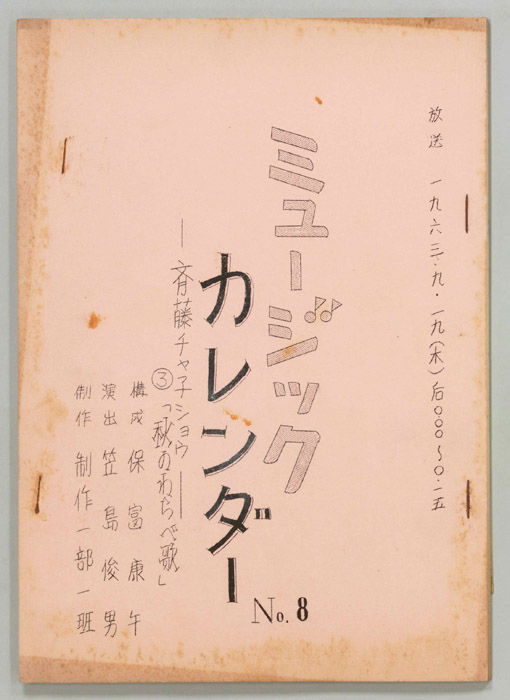 放送 一九六三・九・一九(木)后〇:〇〇〜〇・一五
ミュージック
カレンダー
No. 8
―斉藤チャ子ショウ―
③「秋のわらべ歌」
構成 保富康午
演出 笠島俊男
制作 制作一部一班